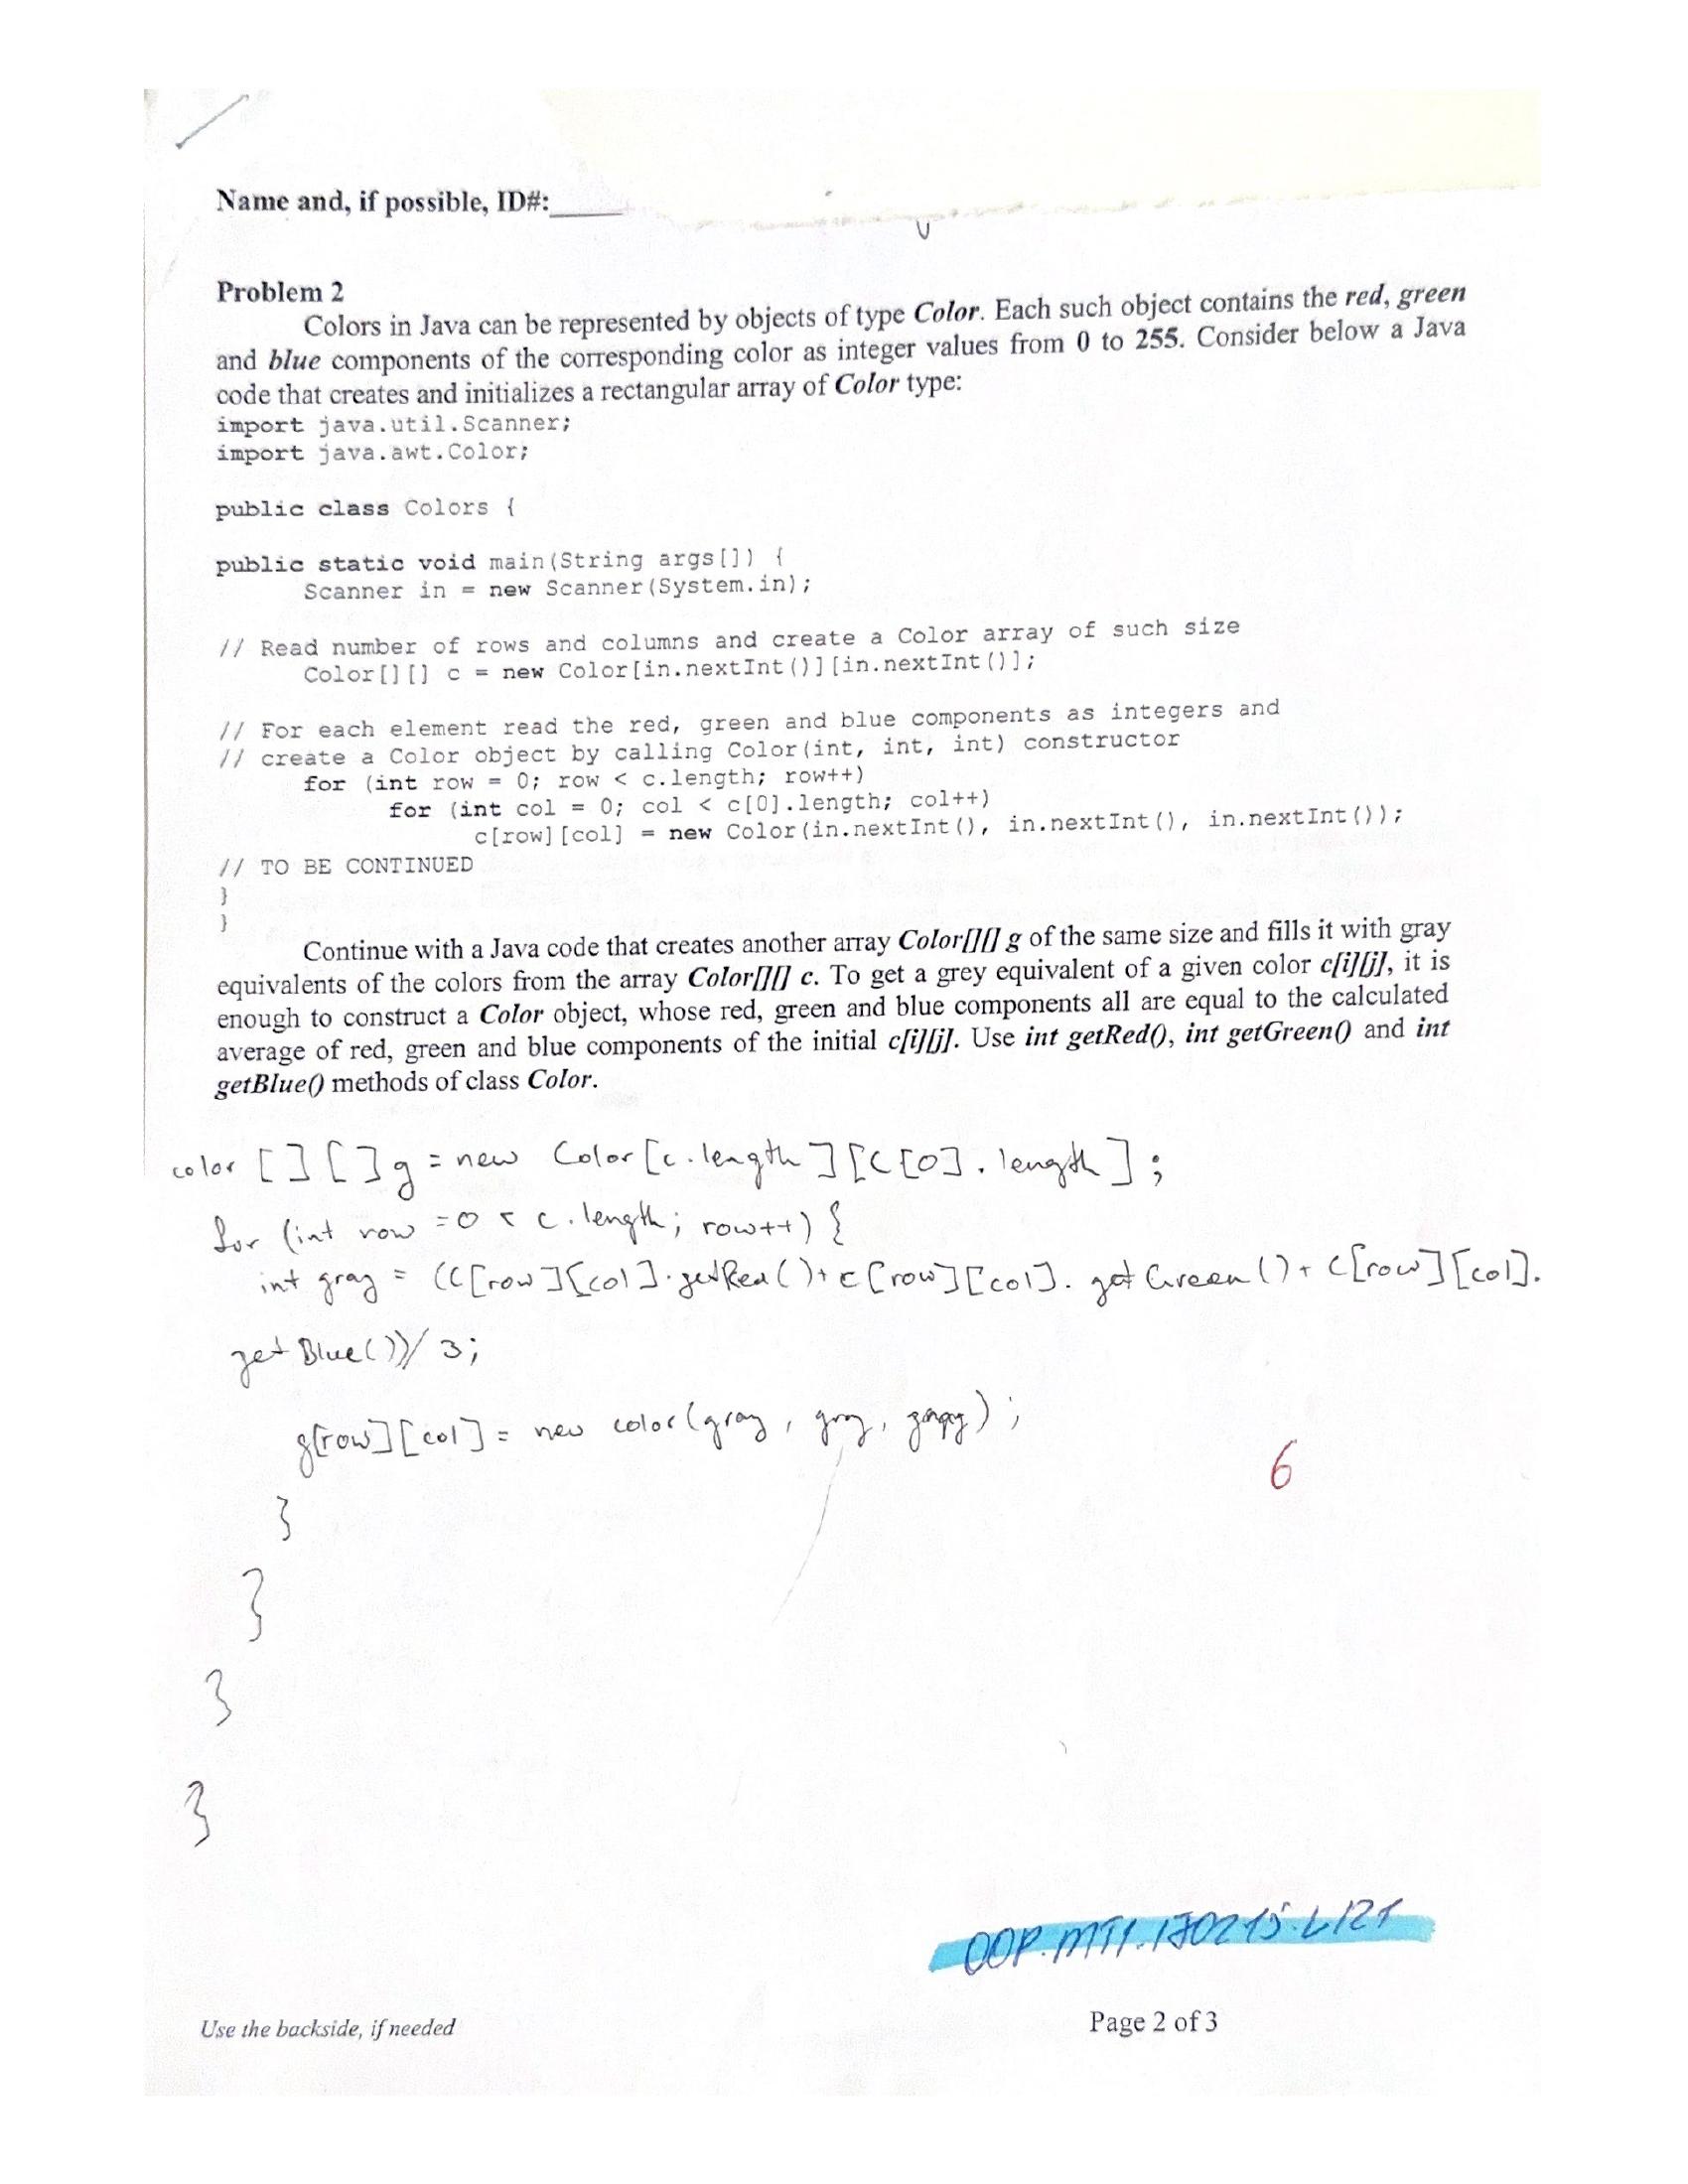 Name and, if possible, ID#:
Problem 2
Colors in Java can be represented by objects of type Color. Each such object contains the red, green
and blue components of the corresponding color as integer values from 0 to 255. Consider below a Java
code that creates and initializes a rectangular array of Color type:
import java.util.Scanner;
import java.awt.Color;
public class Colors {
public static void main(String args[]) {
Scanner in = new Scanner(System.in);
// Read number of rows and columns and create a Color array of such size
Color[][] c = new Color[in.nextInt()][in.nextInt()];
// For each element read the red, green and blue components as integers and
// create a Color object by calling Color(int, int, int) constructor
for (int row = 0; row < c.length; row++)
for (int col = 0; col < c[0].length; col++)
c[row][col] = new Color(in.nextInt(), in.nextInt(), in.nextInt());
// TO BE CONTINUED
}
}
Continue with a Java code that creates another array Color[][] g of the same size and fills it with gray
equivalents of the colors from the array Color[][] c. To get a grey equivalent of a given color c[i][j], it is
enough to construct a Color object, whose red, green and blue components all are equal to the calculated
average of red, green and blue components of the initial c[i][j]. Use int getRed(), int getGreen() and int
getBlue() methods of class Color.
color [ ] [ ] g = new Color [c.length] [c[0].length];
for (int row = 0 < c.length; row++) {
int gray = (c[row][col].getRed() + c[row][col].getGreen() + c[row][col].
getBlue())/3;
g[row][col] = new color(gray, gray,
6
}
}
}
}
OOP.MT1.170215.L121
Use the backside, if needed
Page 2 of 3